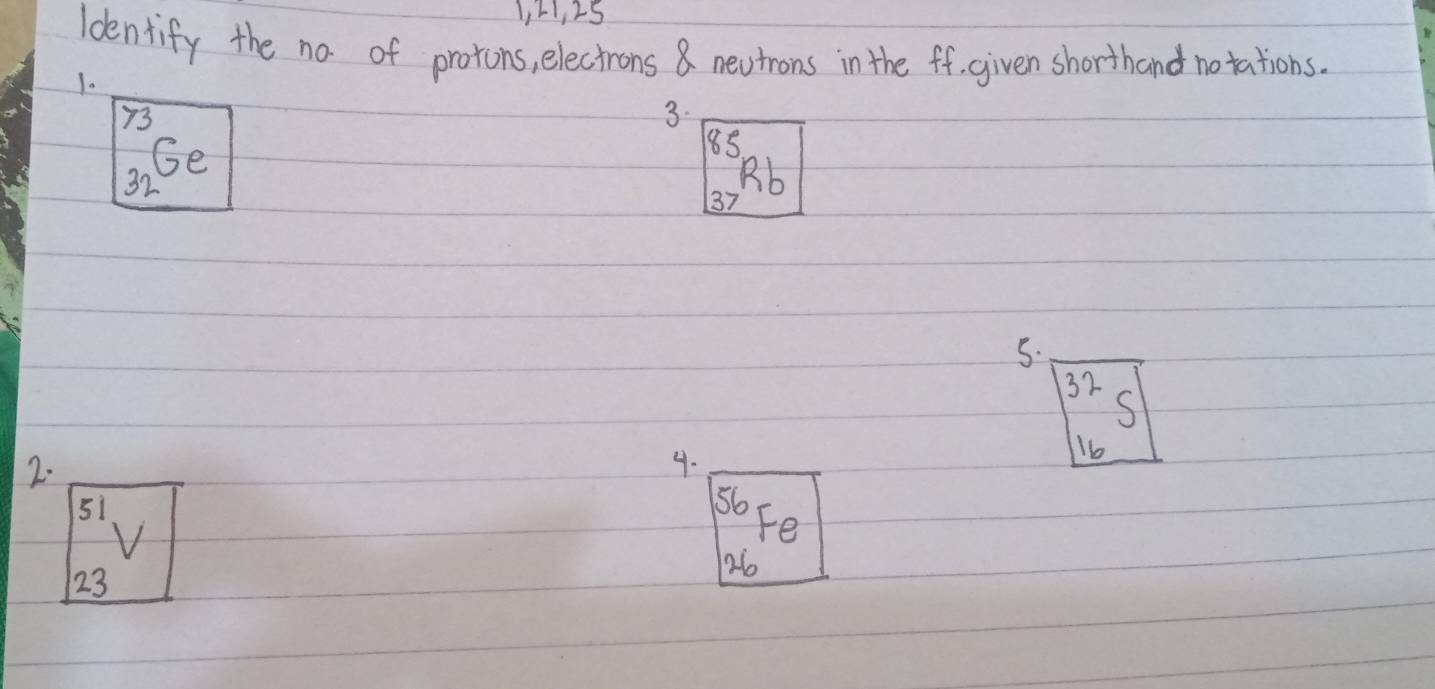 1,21,25
Identify the no. of protons, electrons & neutrons in the ff. given shorthand notations.
1.
73
Ge
32
3.
85
Rb
37
5.
32
S
16
2.
51
V
23
4.
56
Fe
26